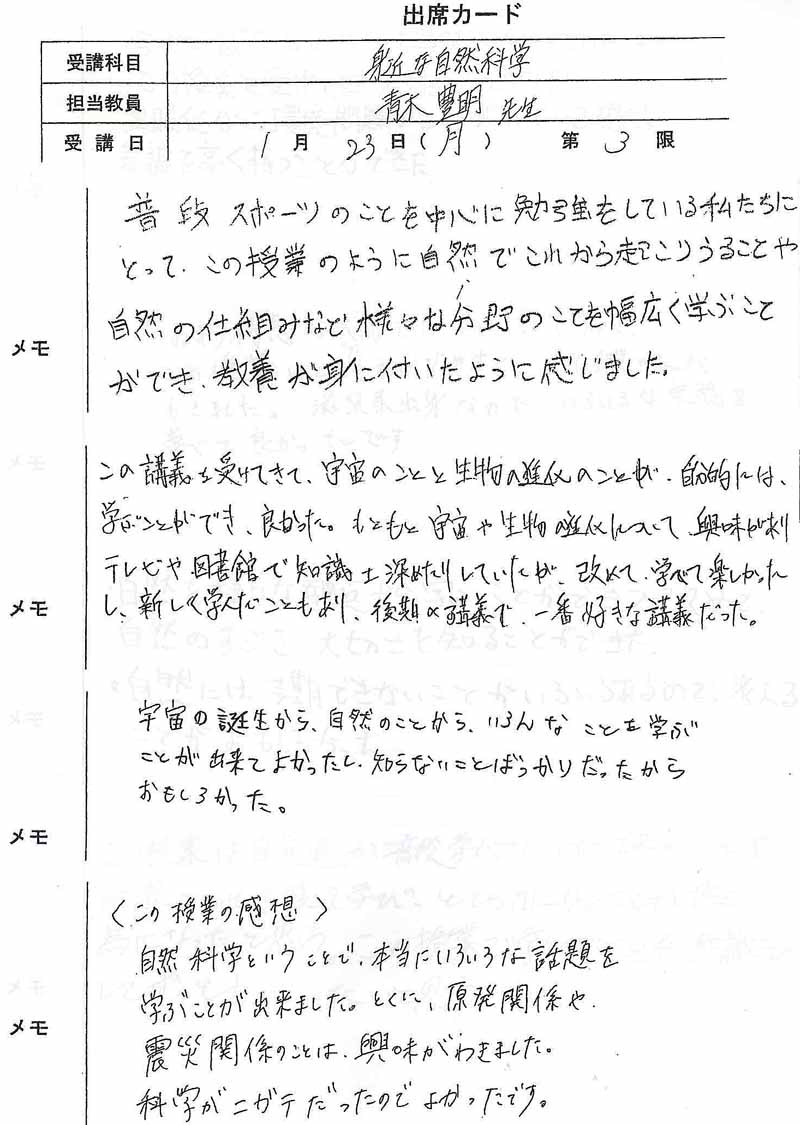 出席カード
受講科目 身近な自然科学
担当教員 青木豊明 先生
受講日 1月23日(月) 第3限
普段スポーツのことを中心に勉強をしている私たちに
とって、この授業のように自然でこれから起こりうることや
自然の仕組みなど様々な分野のことを幅広く学ぶこと
ができ、教養が身に付いたように感じました。
メモ
この講義を受けてきて、宇宙のことと生物の進化のことが、自分的には、
学ぶことができ、良かった。もともと宇宙や生物の進化について、興味があり
テレビや図書館で知識を深めたりしていたが、改めて、学べて楽しかった
し、新しく学んだこともあり、後期の講義で、一番好きな講義だった。
メモ
宇宙の誕生から、自然のことから、いろんなことを学ぶ
ことが出来てよかったし、知らないことばっかりだったから
おもしろかった。
メモ
〈この授業の感想〉
自然科学ということで、本当にいろいろな話題を
学ぶことが出来ました。とくに、原発関係や、
震災関係のことは、興味がわきました。
メモ
科学がニガテだったのでよかったです。